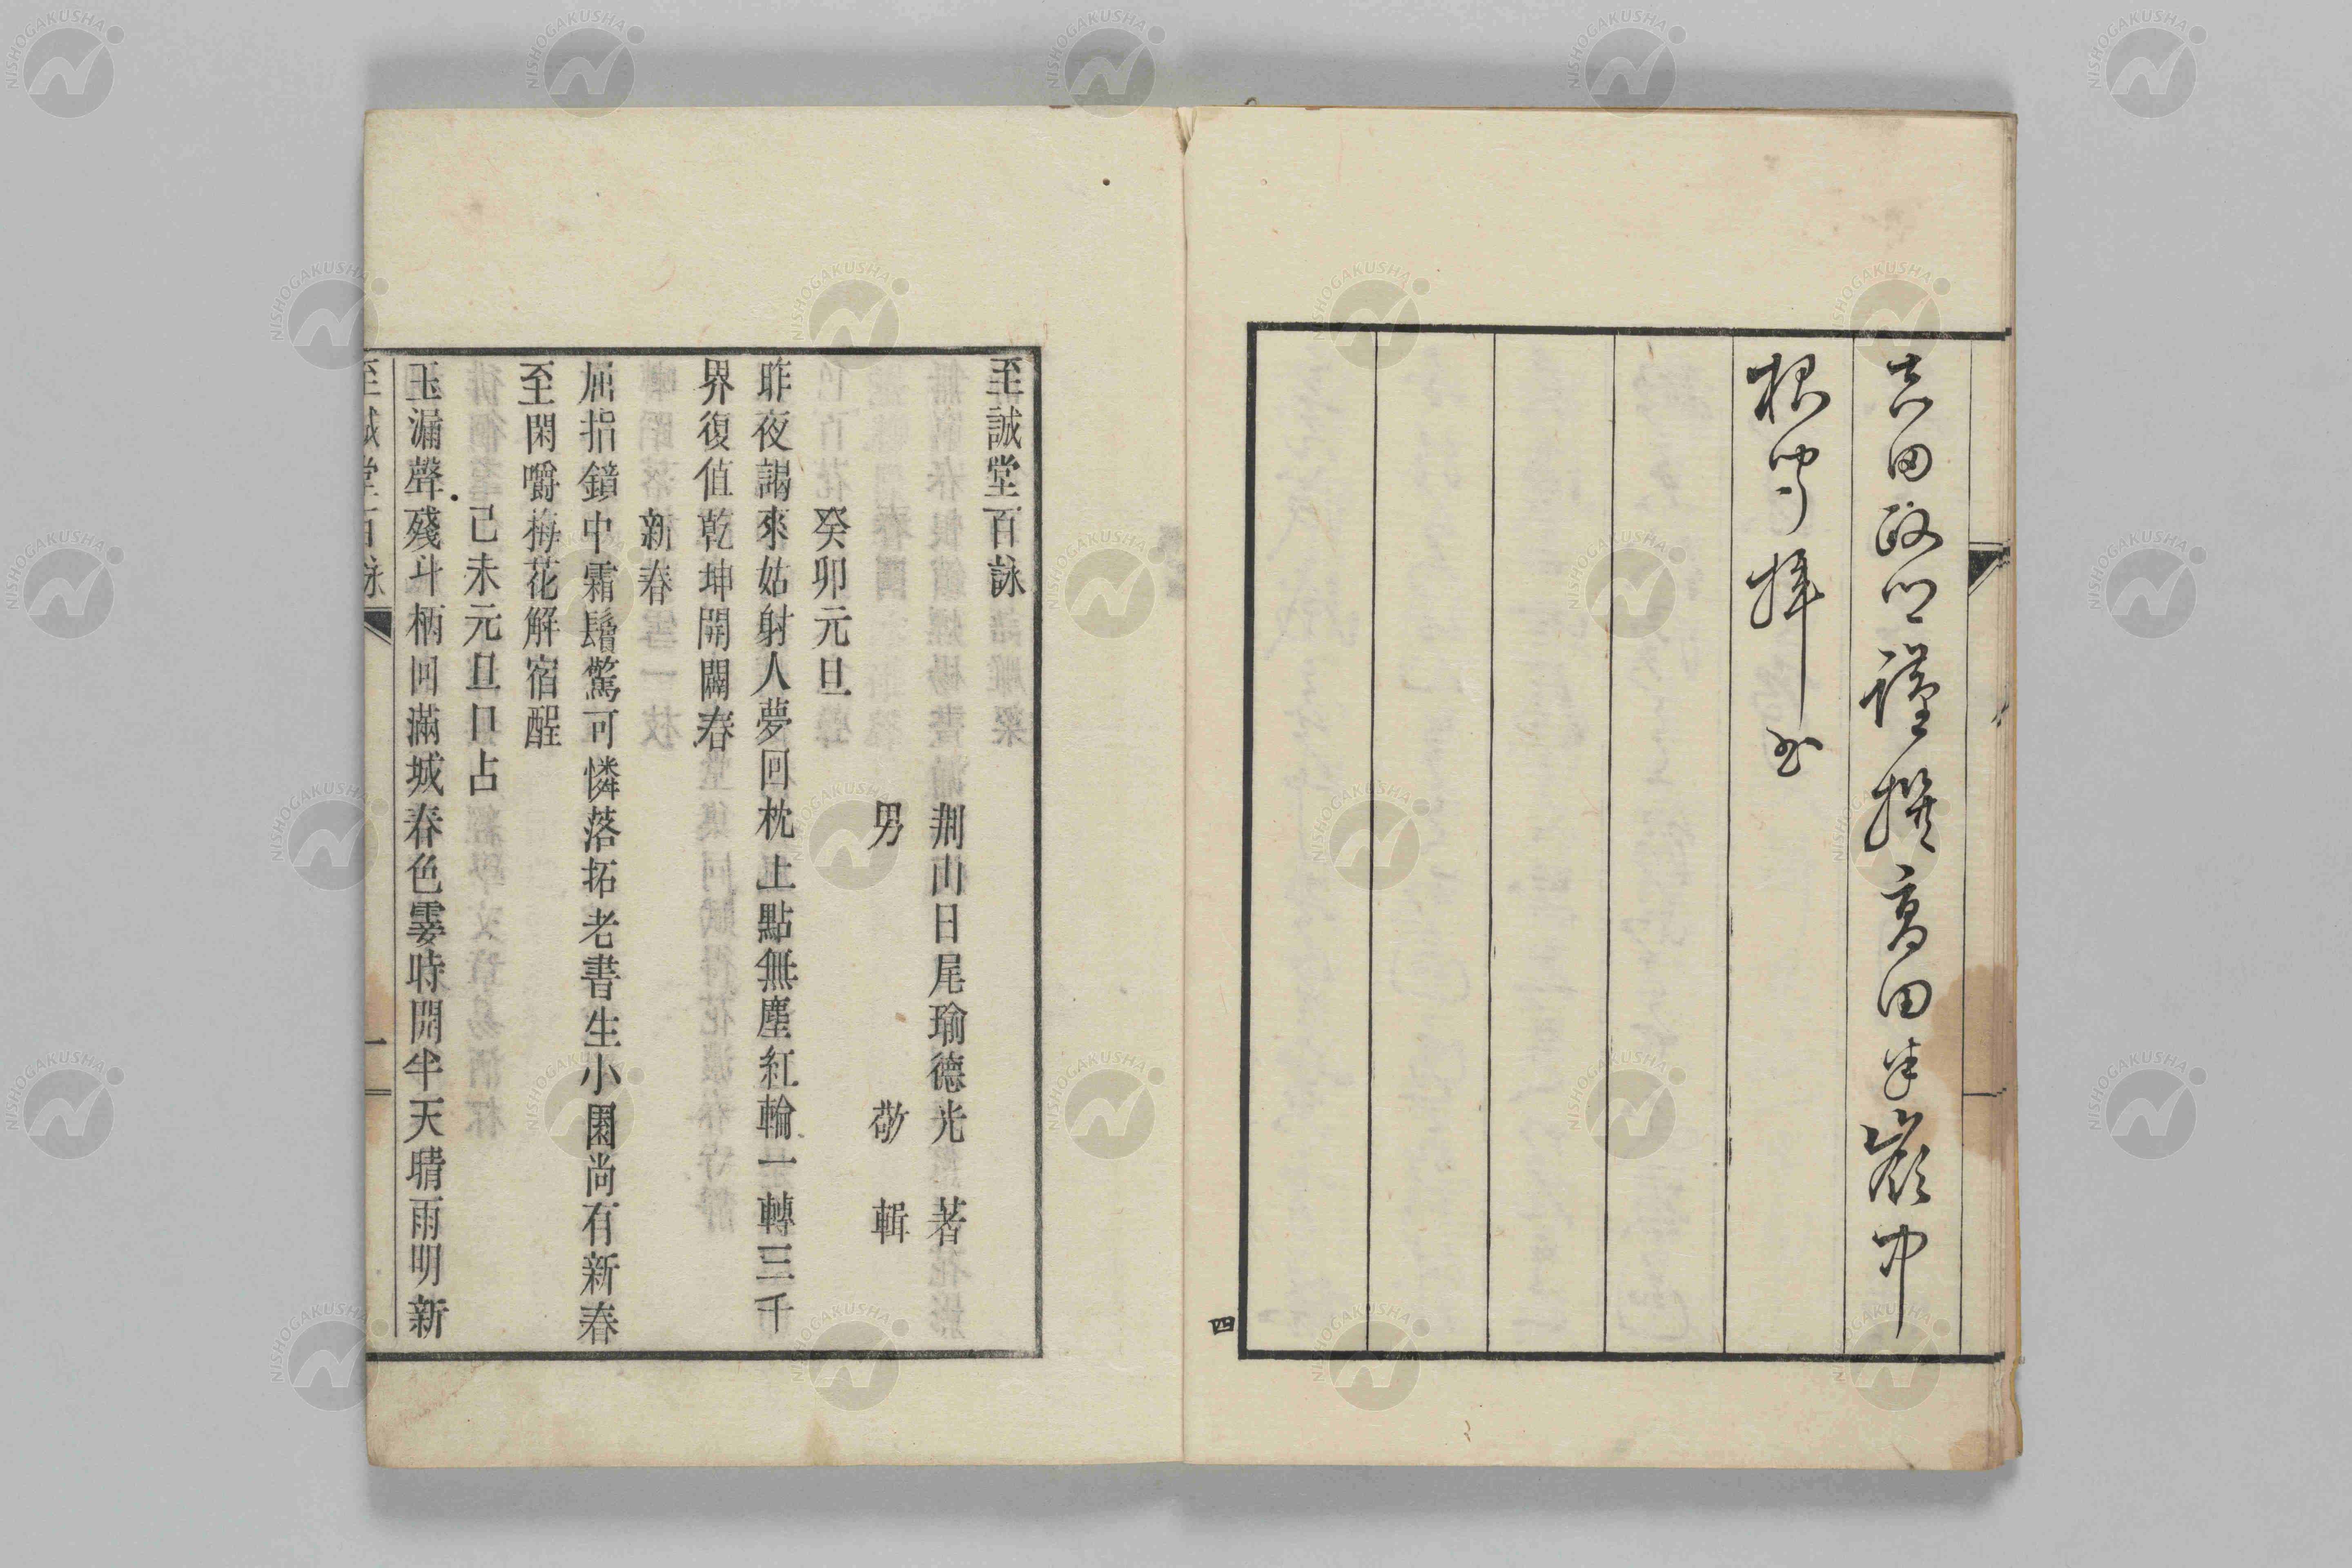 田政
謹撰高田半嶺中
根
拜
四
至誠堂百詠
荆山日尾瑜德光著
男敬輯
癸卯元旦
昨夜謁來姑射人夢回枕上點無塵紅輪一轉三千
界復值乾坤開闢春
新春
屈指鏡中霜鬢驚可憐落拓老書生小園尚有新春
至閑嚼梅花解宿酲
己未元旦口占
玉漏聲殘斗柄回滿城春色霎時開半天晴雨明新
至誠堂百詠
一